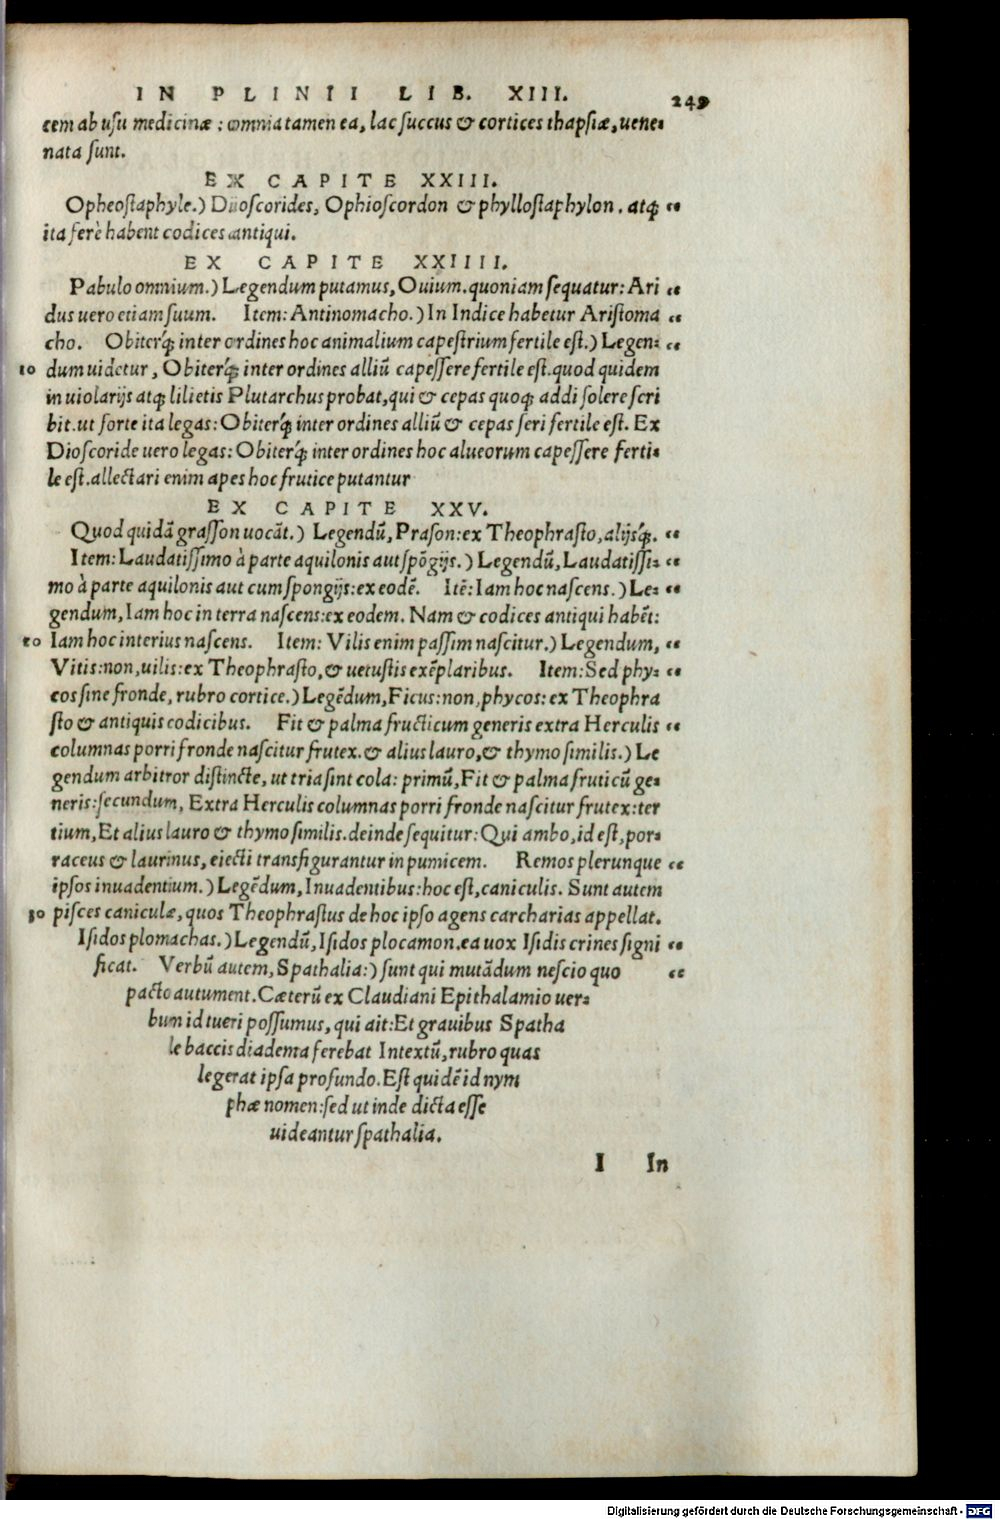 IN PLINII LIB. XIII. 249
cem ab usu medicinæ : omnia tamen ea, lac succus & cortices thapsiæ, uene-
nata sunt.
EX CAPITE XXIII.
Opheostaphyle.) Dioscorides, Ophioscordon & phyllostaphylon. atq; "
ita ferè habent codices antiqui.
EX CAPITE XXIIII.
Pabulo omnium.) Legendum putamus, Ouium. quoniam sequatur: Ari "
dus uero etiam suum. Item: Antinomacho.) In Indice habetur Aristoma "
cho. Obiterq́; inter ordines hoc animalium capestrium fertile est.) Legen- "
10 dum uidetur, Obiterq́; inter ordines alliũ capessere fertile est. quod quidem
in uiolarijs atq; lilietis Plutarchus probat, qui & cepas quoq; addi solere scri
bit. ut forte ita legas: Obiterq́; inter ordines alliũ & cepas seri fertile est. Ex
Dioscoride uero legas: Obiterq́; inter ordines hoc alueorum capessere ferti-
le est. allectari enim apes hoc frutice putantur
EX CAPITE XXV.
Quod quidã grasson uocãt.) Legendũ, Prason: ex Theophrasto, alijsq́;. "
Item: Laudatissimo à parte aquilonis aut spõgijs.) Legendũ, Laudatissi- "
mo à parte aquilonis aut cum spongijs: ex eodẽ. Itẽ: Iam hoc nascens.) Le- "
gendum, Iam hoc in terra nascens: ex eodem. Nam & codices antiqui habẽt:
20 Iam hoc interius nascens. Item: Vilis enim passim nascitur.) Legendum, "
Vitis: non, uilis: ex Theophrasto, & uetustis exẽplaribus. Item: Sed phy- "
cos sine fronde, rubro cortice.) Legẽdum, Ficus: non, phycos: ex Theophra
sto & antiquis codicibus. Fit & palma fructicum generis extra Herculis "
columnas porri fronde nascitur frutex. & alius lauro, & thymo similis.) Le
gendum arbitror distincte, ut tria sint cola: primũ, Fit & palma fruticũ ge-
neris: secundum, Extra Herculis columnas porri fronde nascitur frutex: ter
tium, Et alius lauro & thymo similis. deinde sequitur: Qui ambo, id est, por-
raceus & laurinus, eiecti transfigurantur in pumicem. Remos plerunque "
ipsos inuadentium.) Legẽdum, Inuadentibus: hoc est, caniculis. Sunt autem
30 pisces caniculæ, quos Theophrastus de hoc ipso agens carcharias appellat.
Isidos plomachas.) Legendũ, Isidos plocamon. ea uox Isidis crines signi "
ficat. Verbũ autem, Spathalia:) sunt qui mutãdum nescio quo "
pacto autument. Cæterũ ex Claudiani Epithalamio uer-
bum id tueri possumus, qui ait: Et grauibus Spatha
le baccis diadema ferebat Intextũ, rubro quas
legerat ipsa profundo. Est quidẽ id nym
phæ nomen: sed ut inde dicta esse
uideantur spathalia.
I In
Digitalisierung gefördert durch die Deutsche Forschungsgemeinschaft - DFG